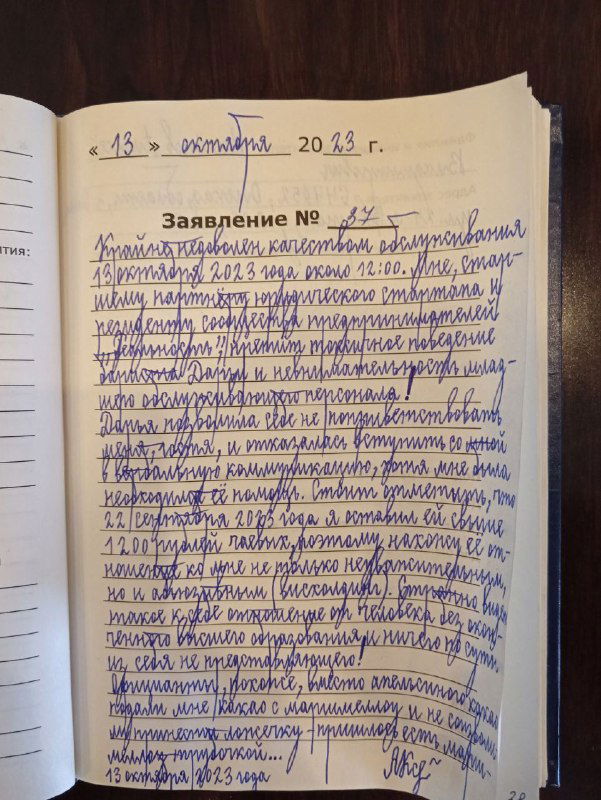 тия:
« 13 » октября 2023 г.
Заявление № 37
Крайне недоволен качеством обслуживания
13 октября 2023 года около 12:00. Мне, стар-
шему партнёру юридического стартапа и
резиденту сообщества предпринимателей
„Реальность", претит токсичное поведение
бариста Дарьи и невнимательность млад-
шего обслуживающего персонала!
Дарья позволила себе не поприветствовать
меня, гостя, и отказалась вступить со мной
в вербальную коммуникацию, хотя мне была
необходима её помощь. Стоит отметить, что
22 сентября 2023 года я оставил ей свыше
1200 рублей чаевых, поэтому нахожу её от-
ношение ко мне не только неуважительным,
но и абьюзивным (висхолдинг). Странно видеть
такое к себе отношение от человека без окон-
ченного высшего образования и ничего по сути
из себя не представляющего!
Официанты, похоже, вместо апельсиного какао
подали мне какао с маршмеллоу и не соизволи
му принести ложечку, пришлось есть марш-
меллоу трубочкой...
13 октября 2023 года